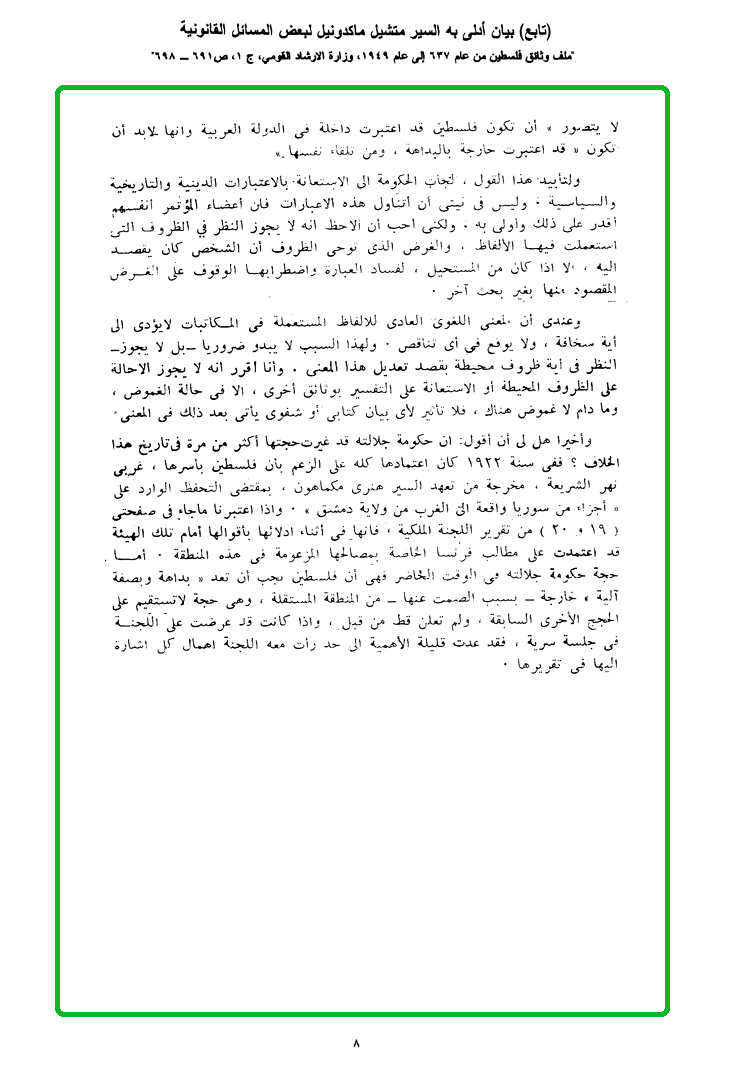 (تابع) بيان أدلى به السير متشيل ماكدونيل لبعض المسائل القانونية
"ملف وثائق فلسطين من عام ٦٣٧ إلى عام ١٩٤٩، وزارة الارشاد القومي، ج ١، ص٦٩١ ــ ٦٩٨"
لا يتصور » أن تكون فلسطين قد اعتبرت داخلة فى الدولة العربية وانها لابد أن
تكون « قد اعتبرت خارجة بالبداهة ، ومن تلقاء نفسها »
ولتأييد هذا القول ، لجأت الحكومة الى الاستعانة بالاعتبارات الدينية والتاريخية
والسياسية ٠ وليس فى نيتى أن أتناول هذه الاعبارات فان أعضاء المؤتمر أنفسهم
أقدر على ذلك وأولى به ٠ ولكنى أحب أن الاحظ انه لا يجوز النظر في الظروف التى
استعملت فيهـا الألفاظ ، والغرض الذى توحى الظروف أن الشخص كان يقصـد
اليه ، الا اذا كان من المستحيل ، لفساد العبارة واضطرابهـا الوقوف على الغـرض
المقصود منها بغير بحث آخر ٠
وعندى أن المعنى اللغوى العادى للالفاظ المستعملة فى المـكاتبات لايؤدى الى
أية سخافة ، ولا يوقع فى أى تناقص ٠ ولهذا السبب لا يبدو ضروريا ــ بل لا يجوز ــ
النظر فى أية ظروف محيطة بقصد تعديل هذا المعنى ٠ وأنا أقرر انه لا يجوز الاحالة
على الظروف المحيطة أو الاستعانة على التفسير بوثائق أخرى ، الا فى حالة الغموض ،
وما دام لا غموض هناك ، فلا تأثير لأى بيان كتابى أو شفوى يأتى بعد ذلك فى المعنى٠
وأخيرا هل لى أن أقول: ان حكومة جلالته قد غيرت حجتها أكثر من مرة فى تاريخ هذا
الخلاف ؟ ففى سنة ١٩٢٢ كان اعتمادها كله على الزعم بأن فلسطين بأسرها ، غربى
نهر الشريعة ، مخرجة من تعهد السير هنرى مكماهون ، بمقتضى التحفظ الوارد على
« أجزاء من سوريا واقعة الى الغرب من ولاية دمشق » ٠ واذا اعتبرنا ماجاء فى صفحتى
( ١٩ و ٢٠ ) من تقرير اللجنة الملكية ، فانها فى أثناء ادلائها بأقوالها أمام تلك الهيئة
قد اعتمدت على مطالب فرنسا الخاصة بمصالحها المزعومة فى هذه المنطقة ٠ أمـا
حجة حكومة جلالته فى الوقت الحاضر فهى أن فلسطين يجب أن تعد « بداهة وبصفة
آلية » خارجة ــ بسبب الصمت عنها ــ من المنطقة المستقلة ، وهى حجة لاتستقيم على
الحجج الأخرى السابقة ، ولم تعلن قط من قبل ، واذا كانت قد عرضت على اللجنـة
فى جلسة سرية ، فقد عدت قليلة الأهمية الى حد رأت معه اللجنة اهمال كل اشارة
اليها فى تقريرها ٠
٨